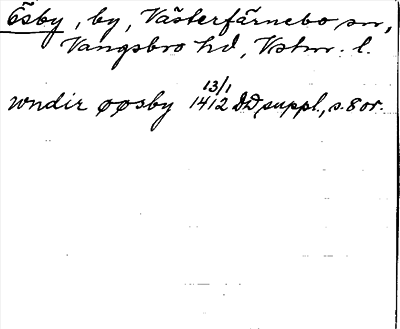 Ösby, by, Västerfärnebo sn,
Vangsbro hd, Vstm. l.
13/1
wndir øøsby 1412 DD suppl., s. 8 or.